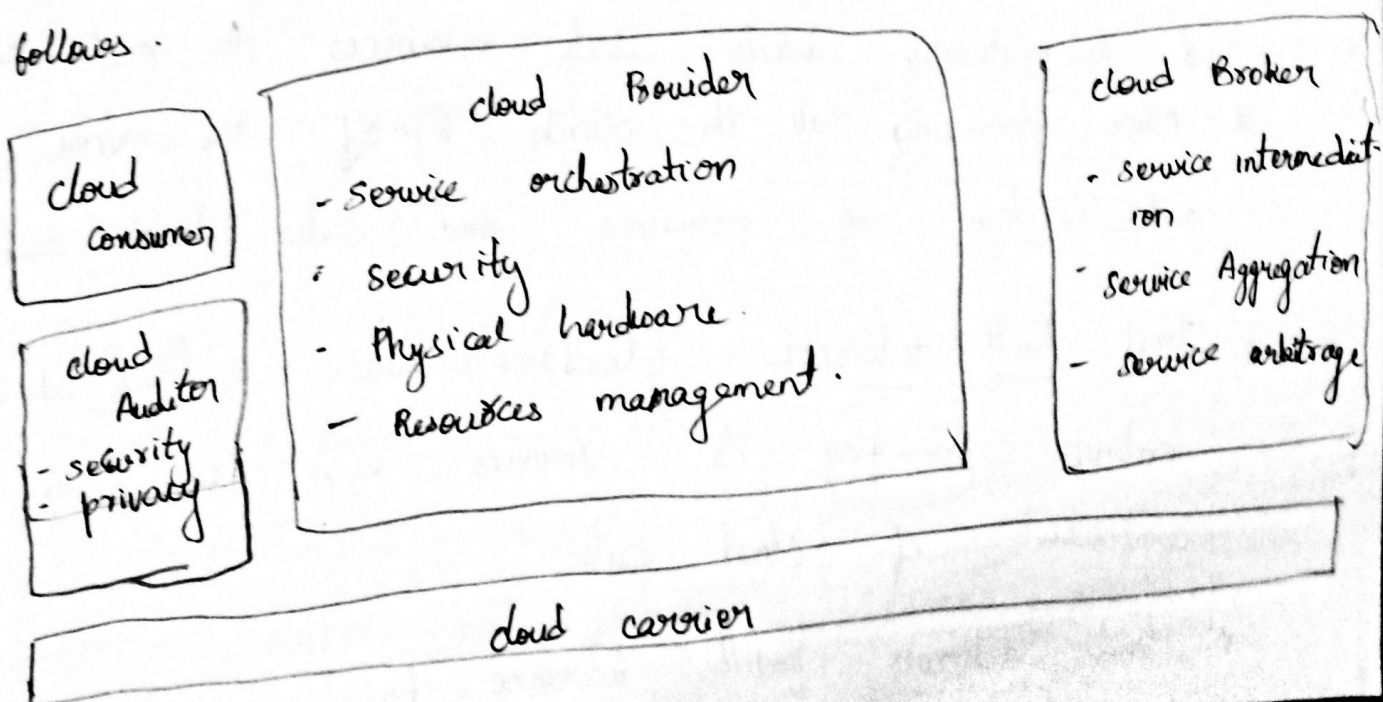 follows.
cloud
consumer
cloud
Auditor
- security
- privacy
cloud Provider
- service orchestration
- security
- Physical hardware.
- Resources management.
cloud Broker
- service intermediat-
ion
- service Aggregation
- service arbitrage
cloud carrier